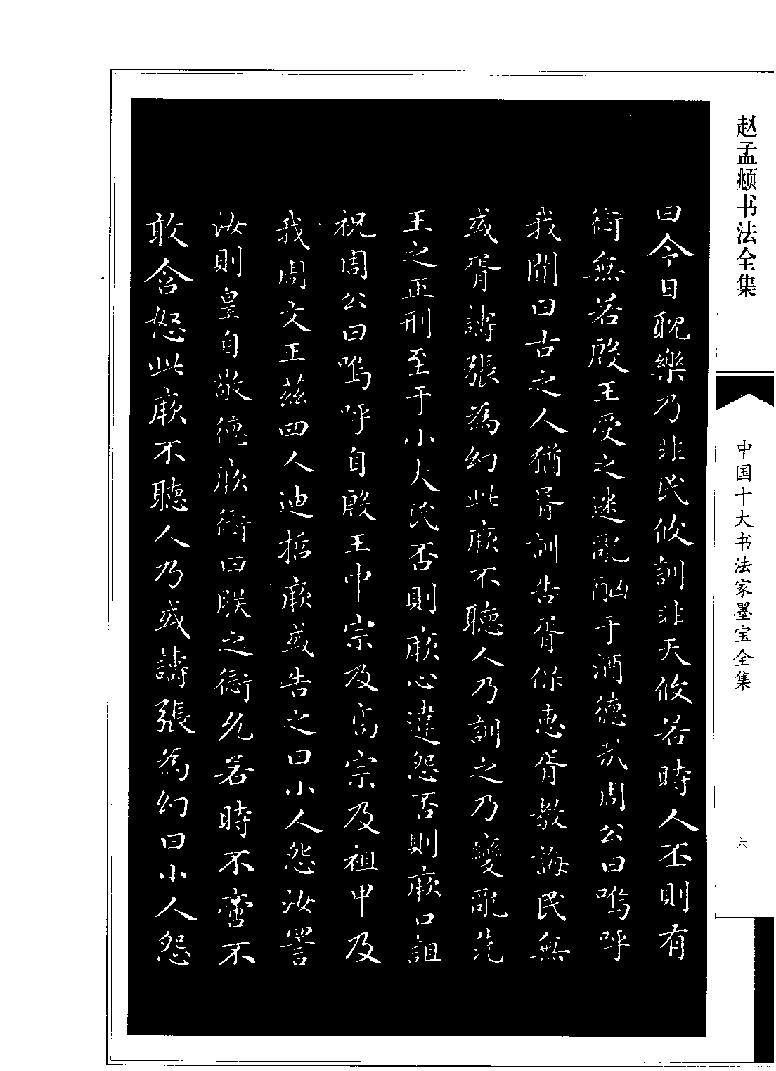 赵孟頫书法全集
中国十大书法家墨宝全集
六
曰今日耽樂乃非民攸訓非天攸若時人丕則有
愆無若殷王受之迷亂酗于酒德哉周公曰嗚呼
我聞曰古之人猶胥訓告胥保惠胥教誨民無
或胥譸張為幻此厥不聽人乃訓之乃變亂先
王之正刑至于小大民否則厥心違怨否則厥口詛
祝周公曰嗚呼自殷王中宗及高宗及祖甲及
我周文王茲四人迪哲厥或告之曰小人怨汝詈
汝則皇自敬德厥愆曰朕之愆允若時不啻不
敢含怒此厥不聽人乃或譸張為幻曰小人怨